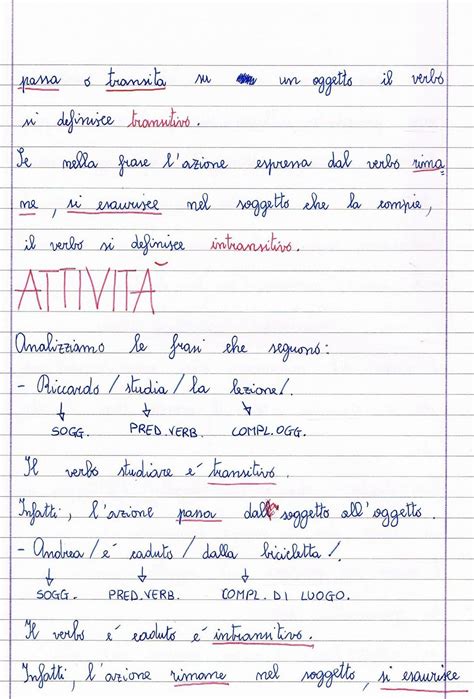 passa o transita su un oggetto il verbo
si definisce transitivo.
Se nella frase l'azione espressa dal verbo rima
ne, si esaurisce nel soggetto che la compie,
il verbo si definisce intransitivo.
ATTIVITÀ
Analizziamo le frasi che seguono:
- Riccardo / studia / la lezione/.
SOGG. PRED.VERB. COMPL.OGG.
Il verbo studiare é transitivo.
Infatti, l'azione passa dal soggetto all'oggetto.
- Andrea / é caduto / dalla bicicletta /.
SOGG. PRED.VERB. COMPL. DI LUOGO.
Il verbo é caduto é intransitivo.
Infatti, l'azione rimane nel soggetto, si esaurisce